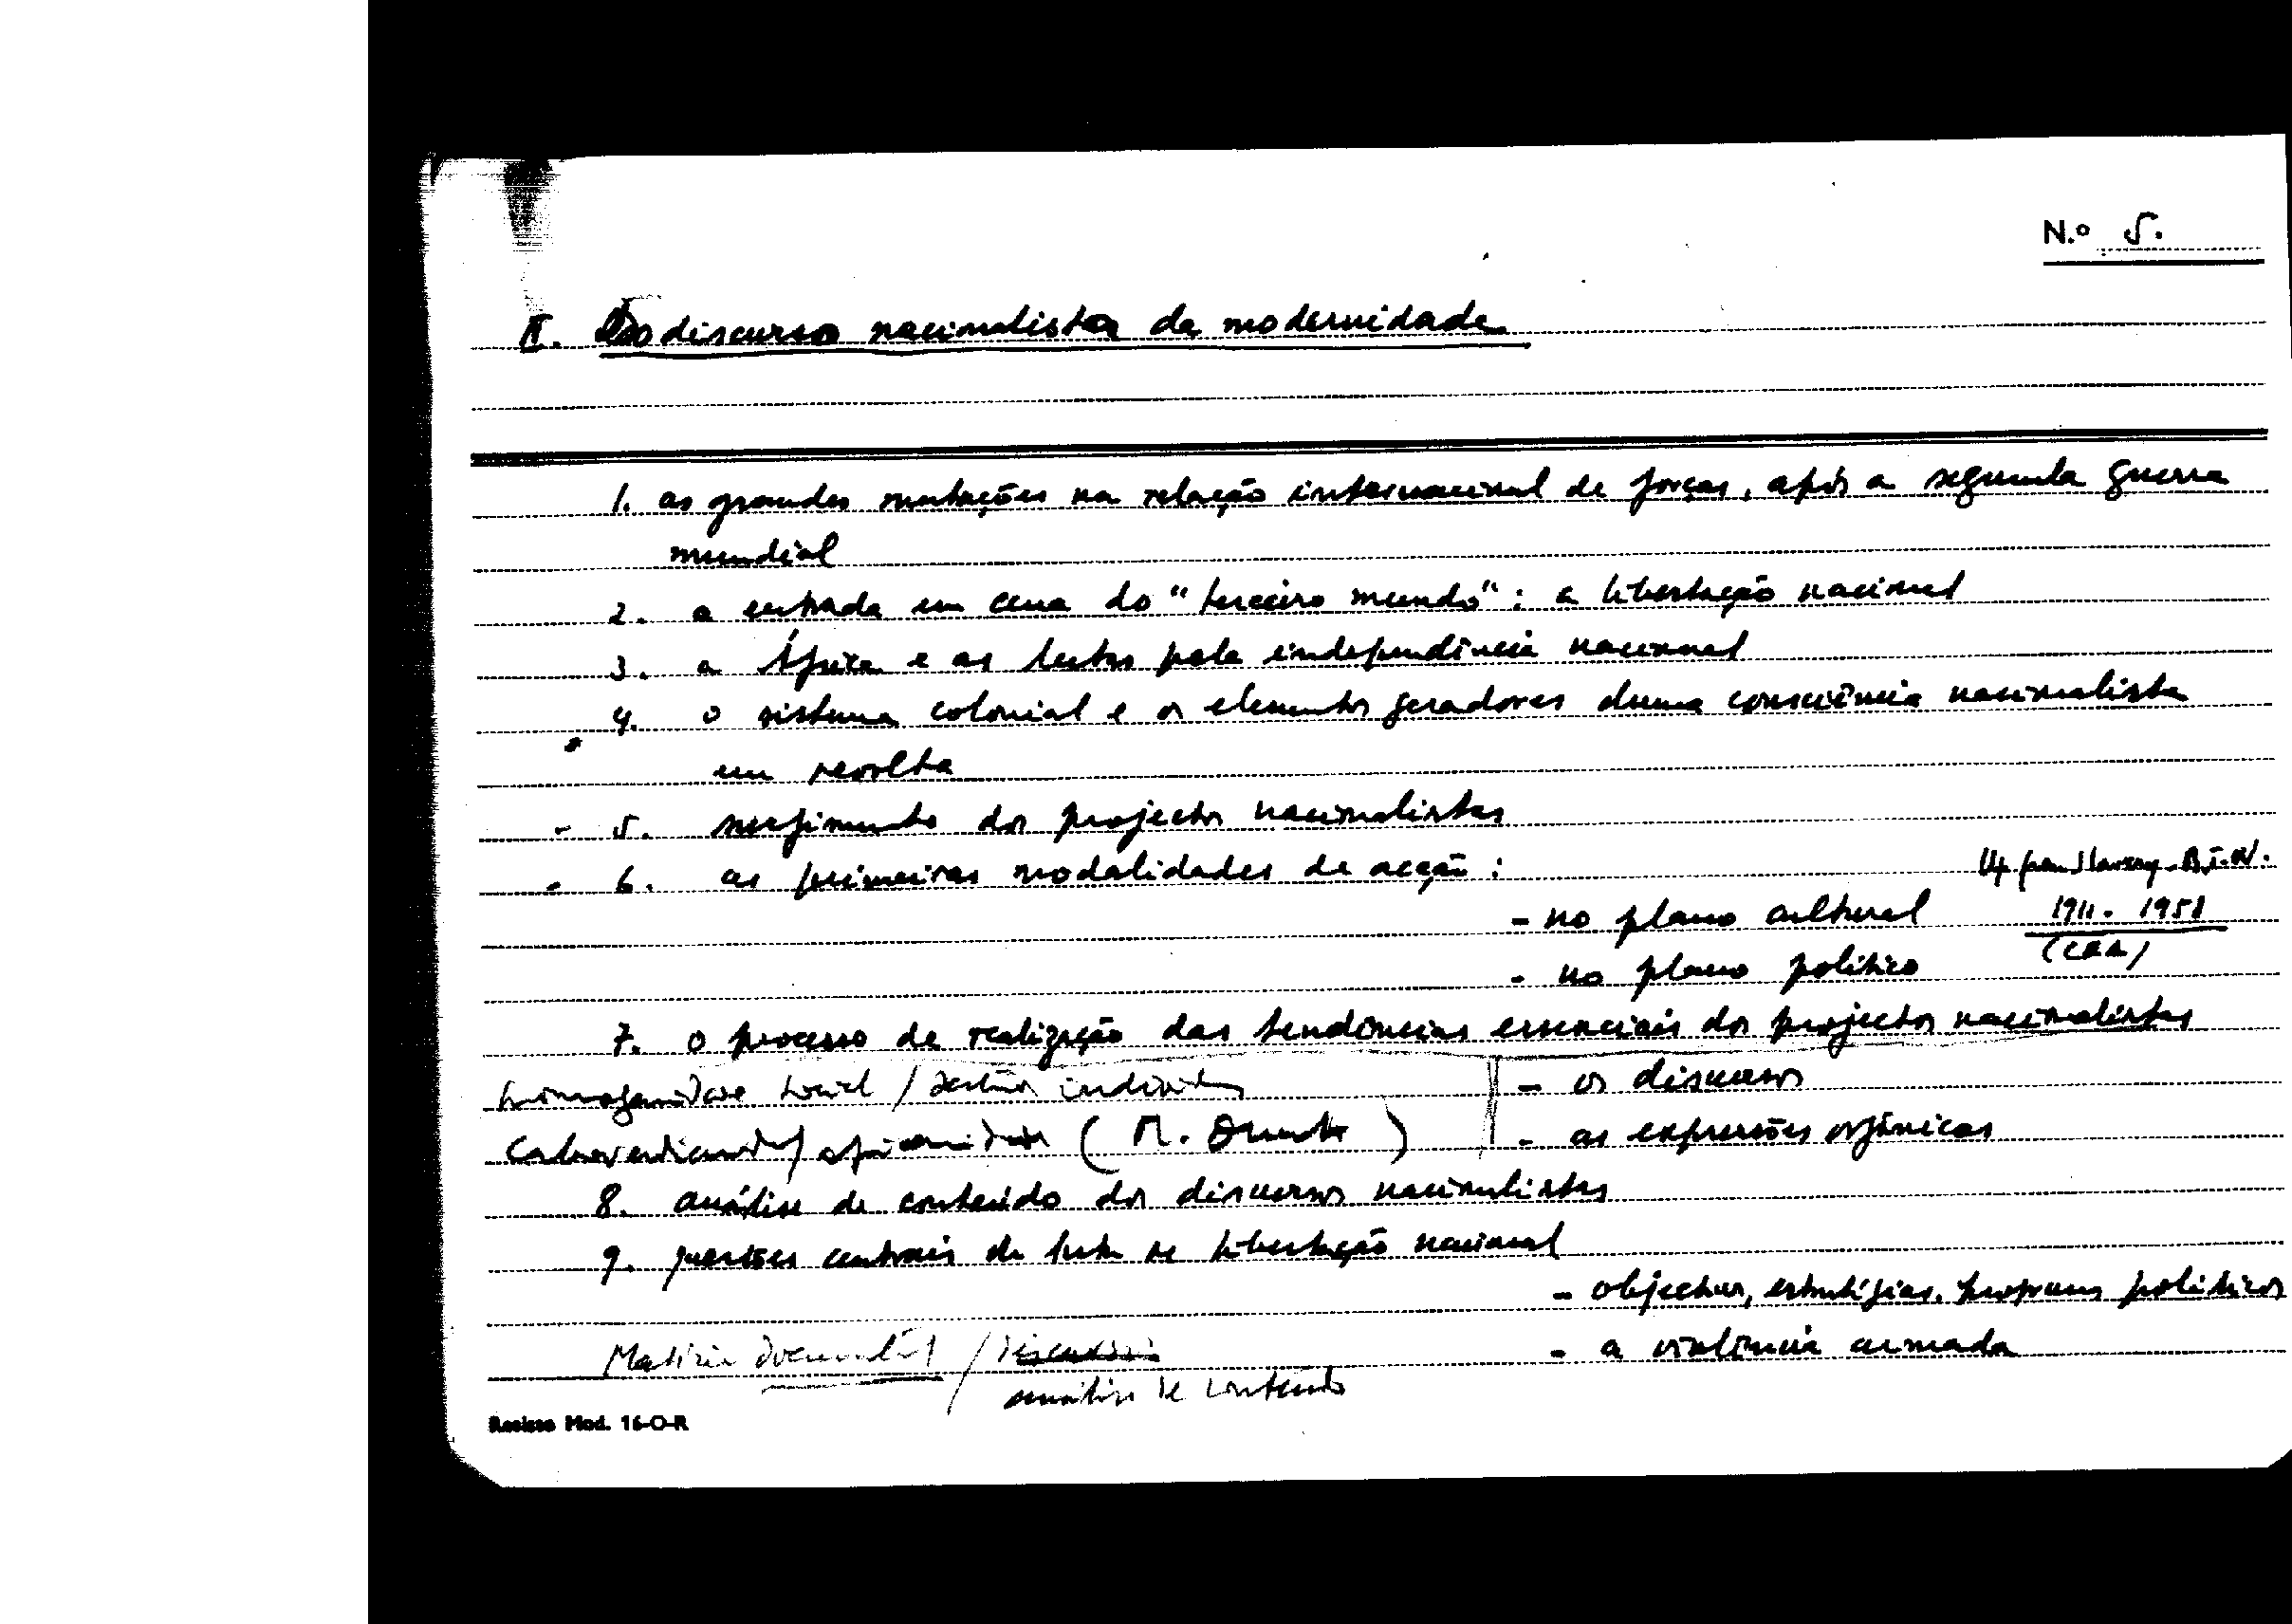 N.º 5.
II. Do discurso nacionalista da modernidade
1. as grandes mutações na relação internacional de forças, após a segunda guerra
mundial
2. a entrada em cena do "terceiro mundo": a libertação nacional
3. a África e as lutas pela independência nacional
4. o sistema colonial e os elementos geradores duma consciência nacionalista
em revolta
- 5. surgimento dos projectos nacionalistas
- 6. as primeiras modalidades de acção:
- no plano cultural
1911. 1951
- no plano político
7. o processo de realização das tendências essenciais dos projectos nacionalistas
social /
- os discursos
(M.
)
- as expressões orgânicas
8. análise de conteúdo dos discursos nacionalistas
9. questões centrais da luta de libertação nacional
- objectivos, estratégias, programas políticos
- a violência armada
/
análise de conteúdo
Resisto Mod. 16-O-R